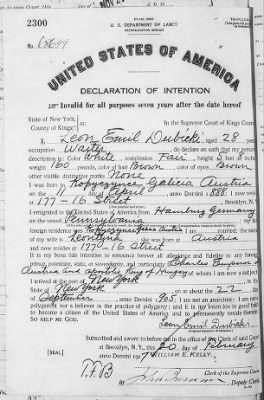 2300
U. S. DEPARTMENT OF LABOR
NATURALIZATION SERVICE
TRIPLICATE
No. 
UNITED STATES OF AMERICA
DECLARATION OF INTENTION
Invalid for all purposes seven years after the date hereof
State of New York,
County of Kings,
In the Supreme Court of Kings County
I, Leon Emil Dubicki, aged 28 years,
occupation Waiter, do declare on oath that my personal
description is: Color White, complexion Fair, height 5 feet 8 inches,
weight 160 pounds, color of hair Brown, color of eyes Brown
other visible distinctive marks None
I was born in Kopyczynce, Galicia Austria
on the 11 day of April, anno Domini 1888; I now reside
at 177-16 Street Brooklyn, N. Y.
I emigrated to United States of America from Hamburg Germany
on the vessel Pennsylvania; my last
foreign residence was Kopyczynce Austria; I am married; the name
of my wife is Leontyna; she was born at Austria
and now resides at 177-16 Street
It is my bona fide intention to renounce forever all allegiance and fidelity to any foreign
prince, potentate, state, or sovereignty, and particularly to Charles Emperor of
Austria and Apostolic King of Hungary, of whom I am now a subject;
I arrived at the port of New York, in the
State of New York, on or about the 22 day
of September, anno Domini 1905; I am not an anarchist; I am not a
polygamist nor a believer in the practice of polygamy; and it is my intention in good faith
to become a citizen of the United States of America and to permanently reside therein:
SO HELP ME GOD.
Leon Emil Dubicki
Subscribed and sworn to before me in the office of the Clerk of said Court
at Brooklyn, N. Y., this 20 day of February
anno Domini 1917
[SEAL]
WILLIAM E. KELLY,
Clerk
Deputy Clerk.